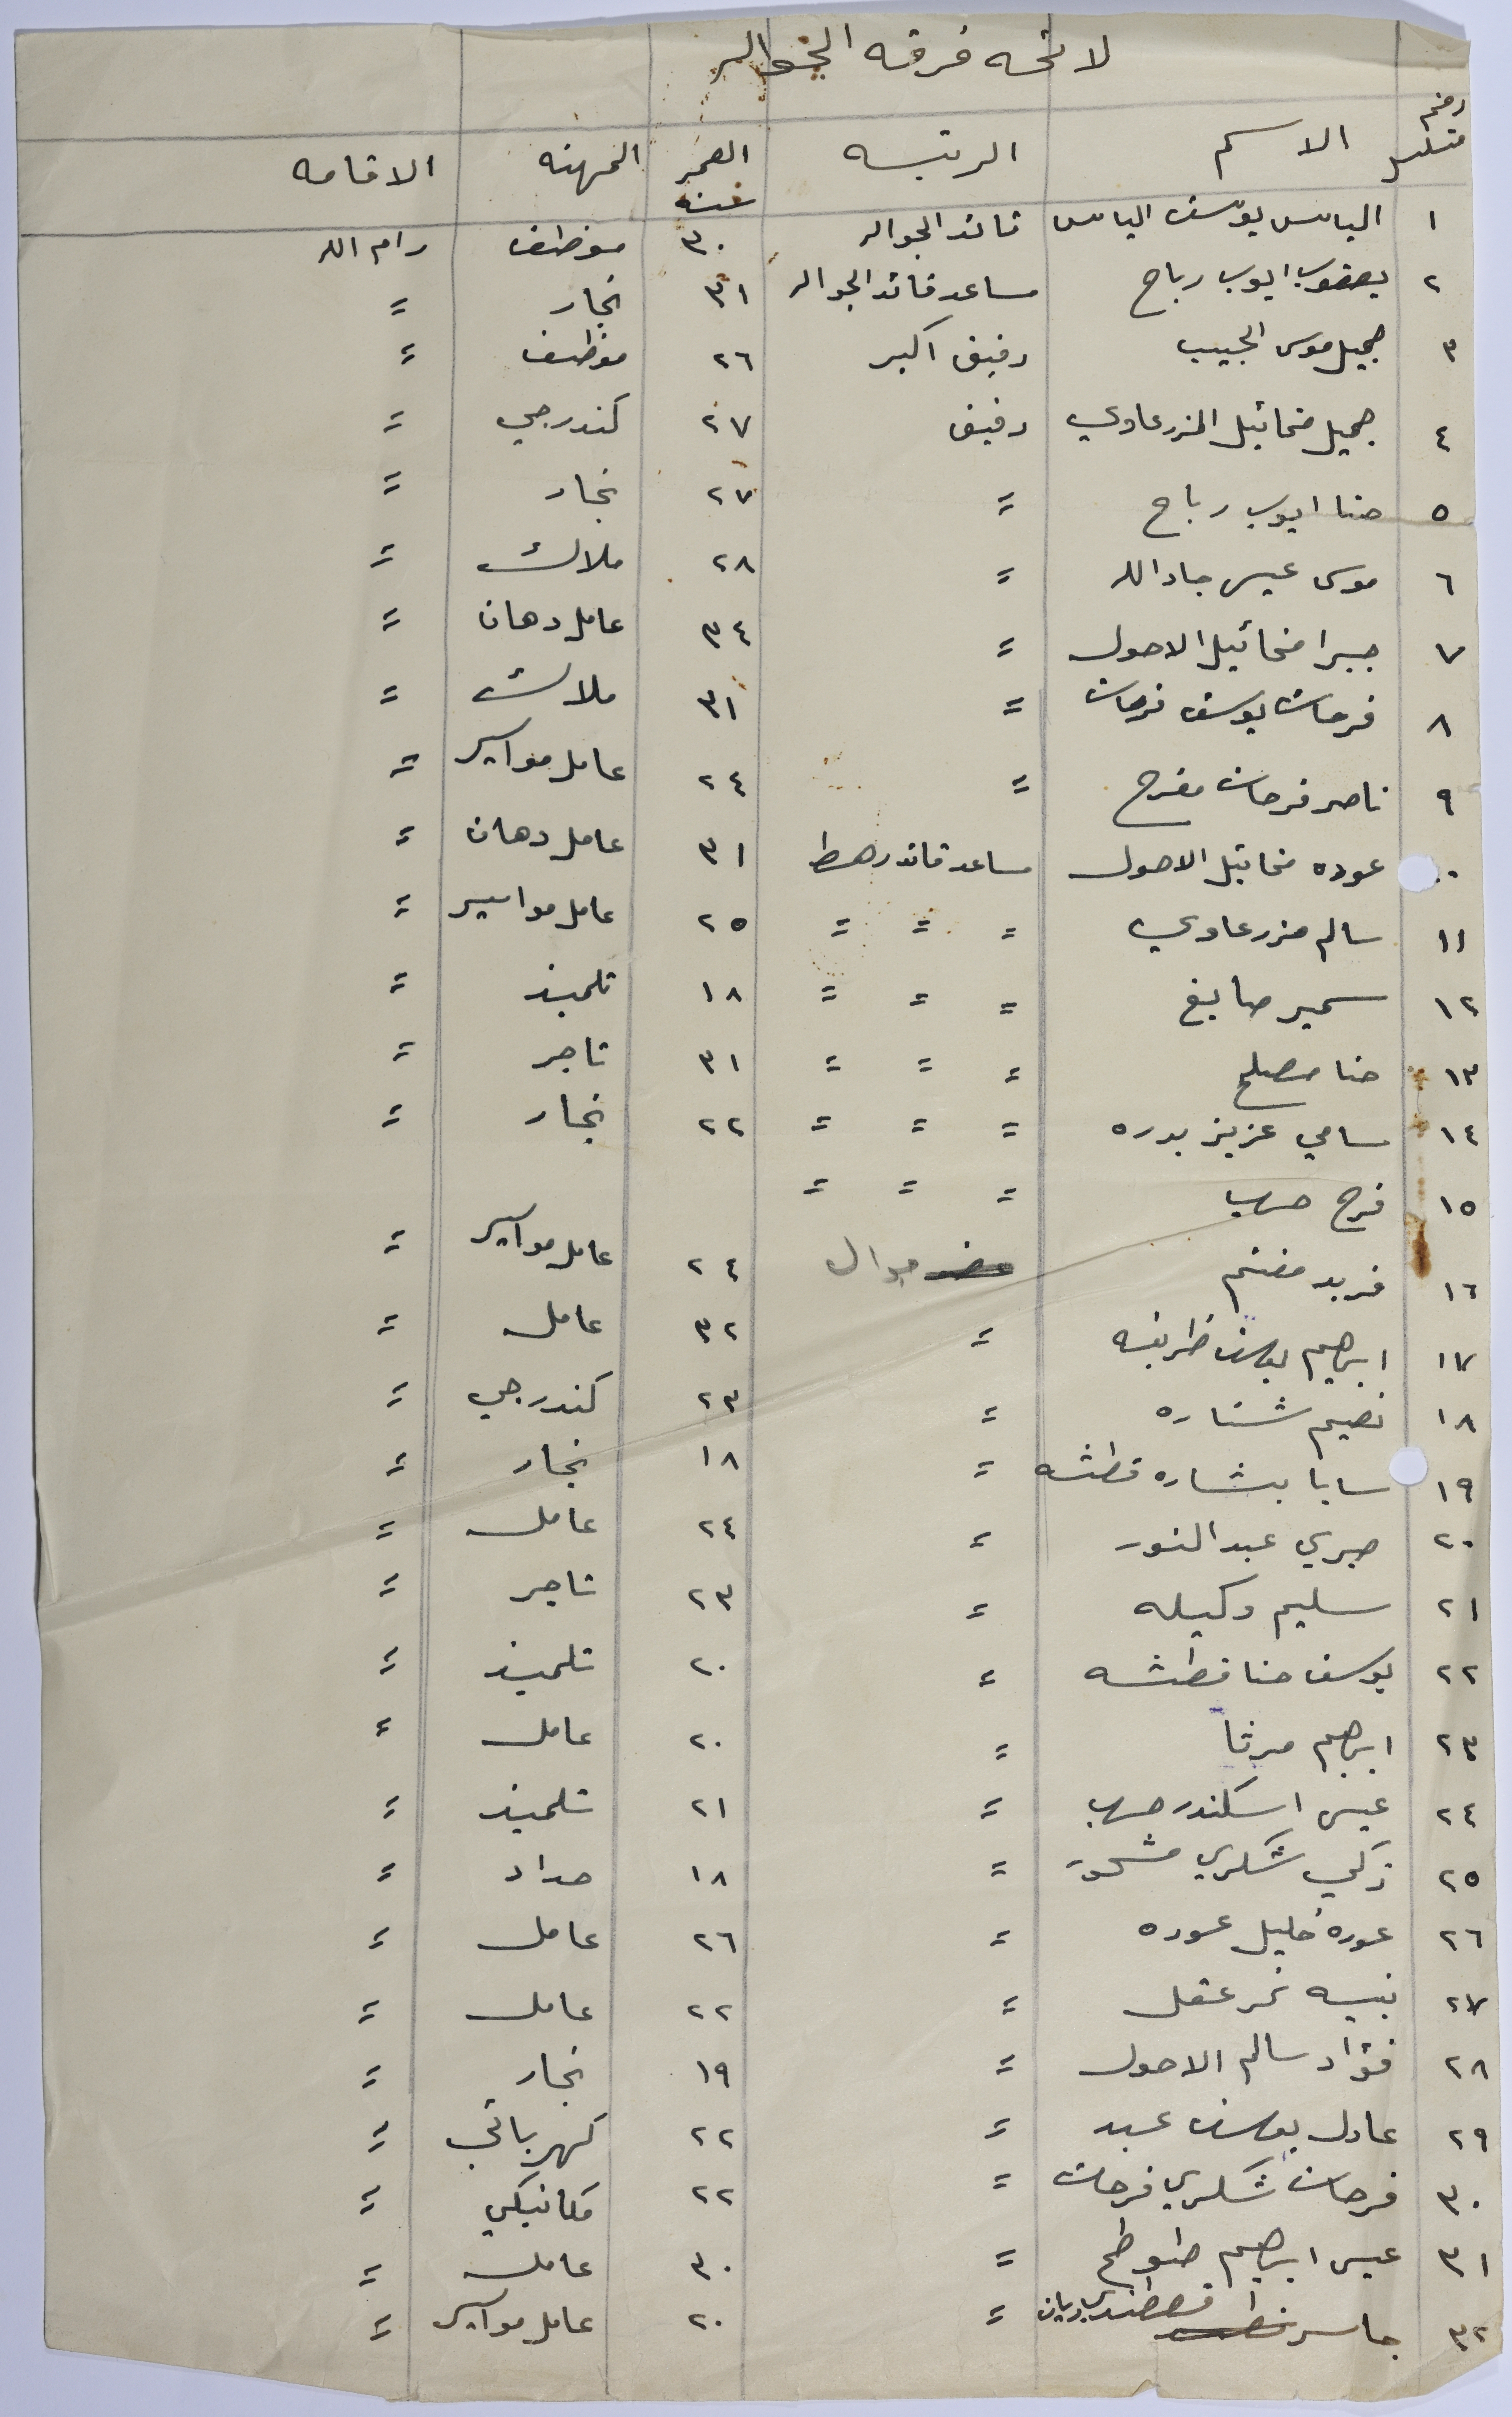 لائحه فرقه الجواله
رقم متسلسل الاسم الرتبه العمر سنه المهنه الاقامه
١ الياس يوسف الياس قائد الجواله ٣٠ موظف رام الله
٢ يعقوب ايوب رباح مساعد قائد الجواله ٣١ نجار =
٣ جميل موسى الجبيب رفيق اكبر ٢٦ موظف =
٤ جميل مخائيل المزرعاوي رفيق ٢٧ كندرجي =
٥ حنا ايوب رباح = ٢٧ نجار =
٦ موسى عيسى جادالله = ٢٨ ملاك =
٧ جبرا مخائيل الاحول = ٣٤ عامل دهان =
٨ فرحات يوسف فرحات = ٣١ ملاك =
٩ ناصر فرحات مفرح = ٢٤ عامل مواسير =
عوده مخائيل الاحول مساعد قائد رهط ٣١ عامل دهان =
١١ سالم مزرعاوي = = = ٢٥ عامل مواسير =
١٢ سمير صايغ = = = ١٨ تلميذ =
١٣ حنا مصلح = = = ٣١ تاجر =
١٤ سامي عزيز بدره = = = ٢٢ نجار =
١٥ فرح حرب = = =
١٦ فريد مغنم جوال ٢٤ عامل مواسير =
١٧ ابرهيم يوسف ظريفه = ٣٢ عامل =
١٨ نعيم شناره = ٢٣ كندرجي =
١٩ سابا بشاره قطشه = ١٨ نجار =
٢٠ صبري عبدالنور = ٢٤ عامل =
٢١ سليم وكيله = ٢٣ تاجر =
٢٢ يوسف حنا قطشه = ٢٠ تلميذ =
٢٣ ابرهيم مرتا = ٢٠ عامل =
٢٤ عيسى اسكندر حرب = ٢١ تلميذ =
٢٥ زكي شكري مشحور = ١٨ حداد =
٢٦ عوده خليل عوده = ٢٦ عامل =
٢٧ نبيه نمر عقل = ٢٢ عامل =
٢٨ فؤاد سالم الاحول = ١٩ نجار =
٢٩ عادل يوسف عبد = ٢٢ كهربائي =
٣٠ فرحات شكري فرحات = ٢٢ مكانيكي =
٣١ عيسى ابرهيم طوطح = ٣٠ عامل =
٣٢ جاسر قسطندي ديان = ٢٠ عامل مواسير =